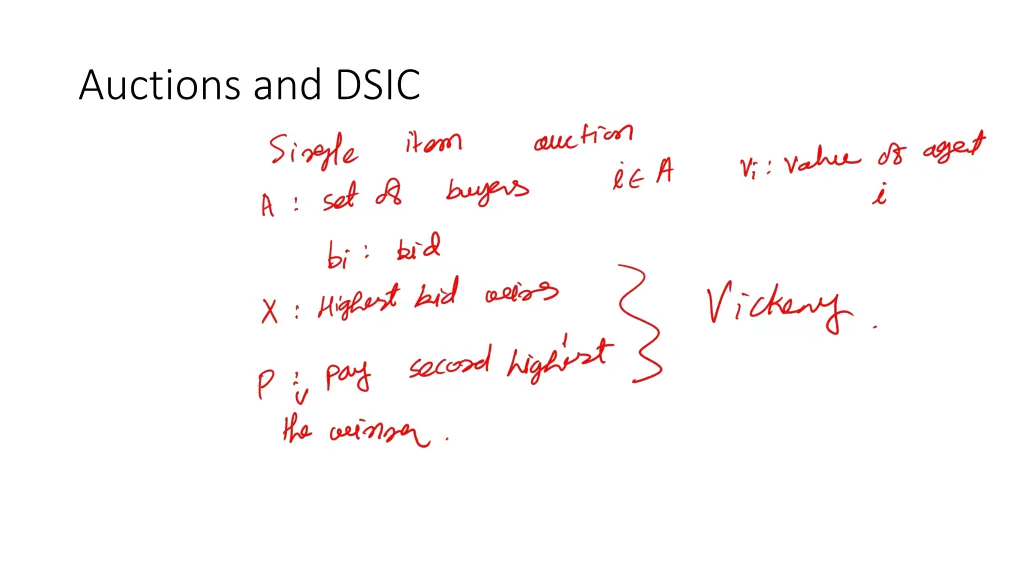 Auctions and DSIC
Single item auction
A : set of buyers i ∈ A vi : value of agent i
bi : bid
X : Highest bid wins
P : pay second highest
the winner .
Vickery .